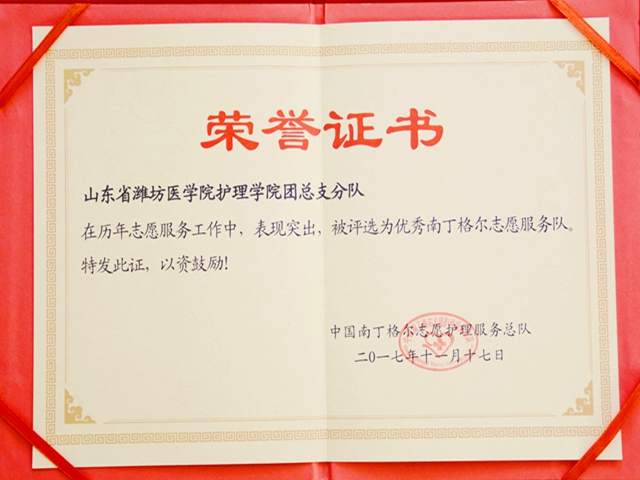 荣誉证书
山东省潍坊医学院护理学院团总支分队
在历年志愿服务工作中，表现突出，被评选为优秀南丁格尔志愿服务队。
特发此证，以资鼓励！
中国南丁格尔志愿护理服务总队
二〇一七年十一月十七日